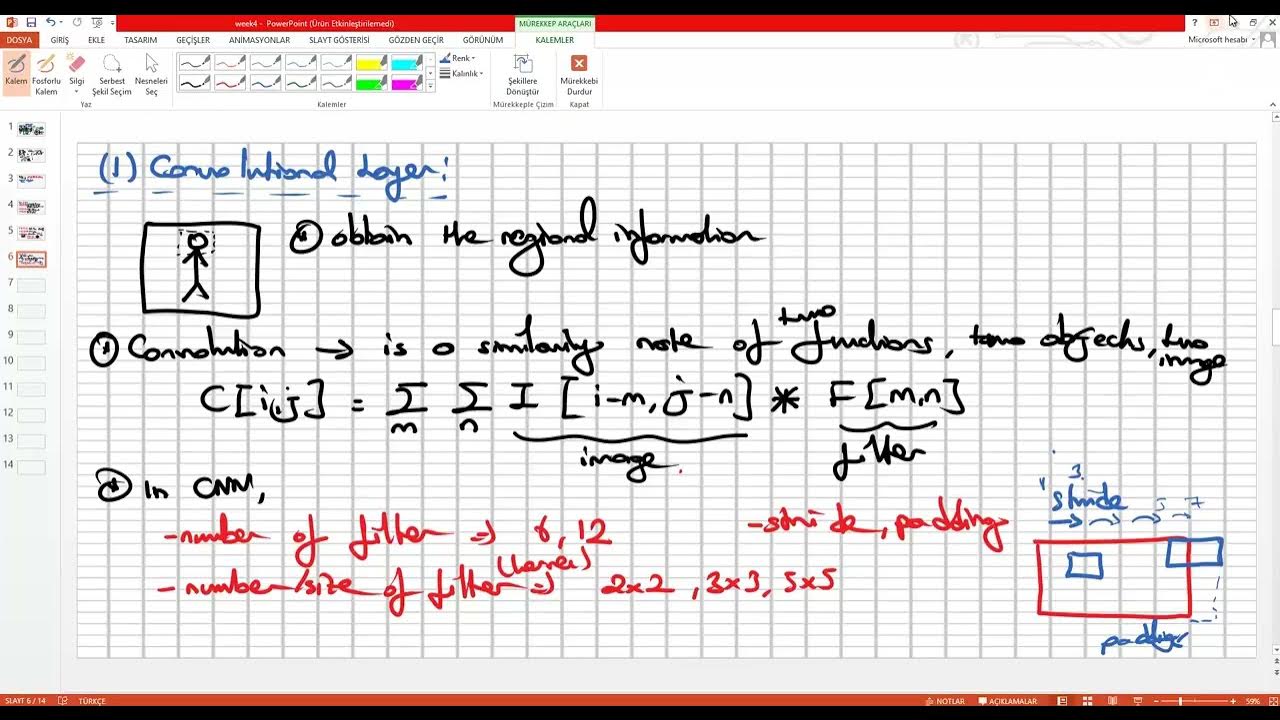 week4 - PowerPoint (Ürün Etkinleştirilemedi)
MÜREKKEP ARAÇLARI
DOSYA GİRİŞ EKLE TASARIM GEÇİŞLER ANİMASYONLAR SLAYT GÖSTERİSİ GÖZDEN GEÇİR GÖRÜNÜM KALEMLER
Microsoft hesabı
Kalem Fosforlu Kalem Silgi Serbest Şekil Seçim Nesneleri Seç
Renk
Kalınlık
Şekillere Dönüştür
Mürekkebi Durdur
Yaz Kalemler Mürekkeple Çizim Kapat
1
2
3
4
5
6
7
8
9
10
11
12
13
14
(1) Convolutional Layer:
obtain the regional information
Convolution → is a similarity note of two functions, two objects, two image
C[i,j] = Σ Σ I [i-m, j-n] * F[m,n]
m n
image filter
in CNN,
-number of filter ⇒ 6, 12
-stride, padding
(kernel)
-number/size of filter ⇒ 2x2, 3x3, 5x5
1 3 5 7
stride
padding
SLAYT 6 / 14 TÜRKÇE NOTLAR AÇIKLAMALAR 59%